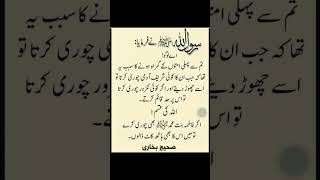 رسول اللہ ﷺ نے فرمایا:
اے لوگو!
تم سے پہلی امتوں کے گمراہ ہونے کا سبب یہ
تھا کہ جب ان کا کوئی شریف آدمی چوری کرتا تو
اسے چھوڑ دیتے اور اگر کوئی کمزور چوری کرتا
تو اس پر حد قائم کرتے۔
اللہ کی قسم!
اگر فاطمہ بنت محمد ﷺ بھی چوری کرے
تو میں اس کا بھی ہاتھ کاٹ ڈالوں۔
صحیح بخاری